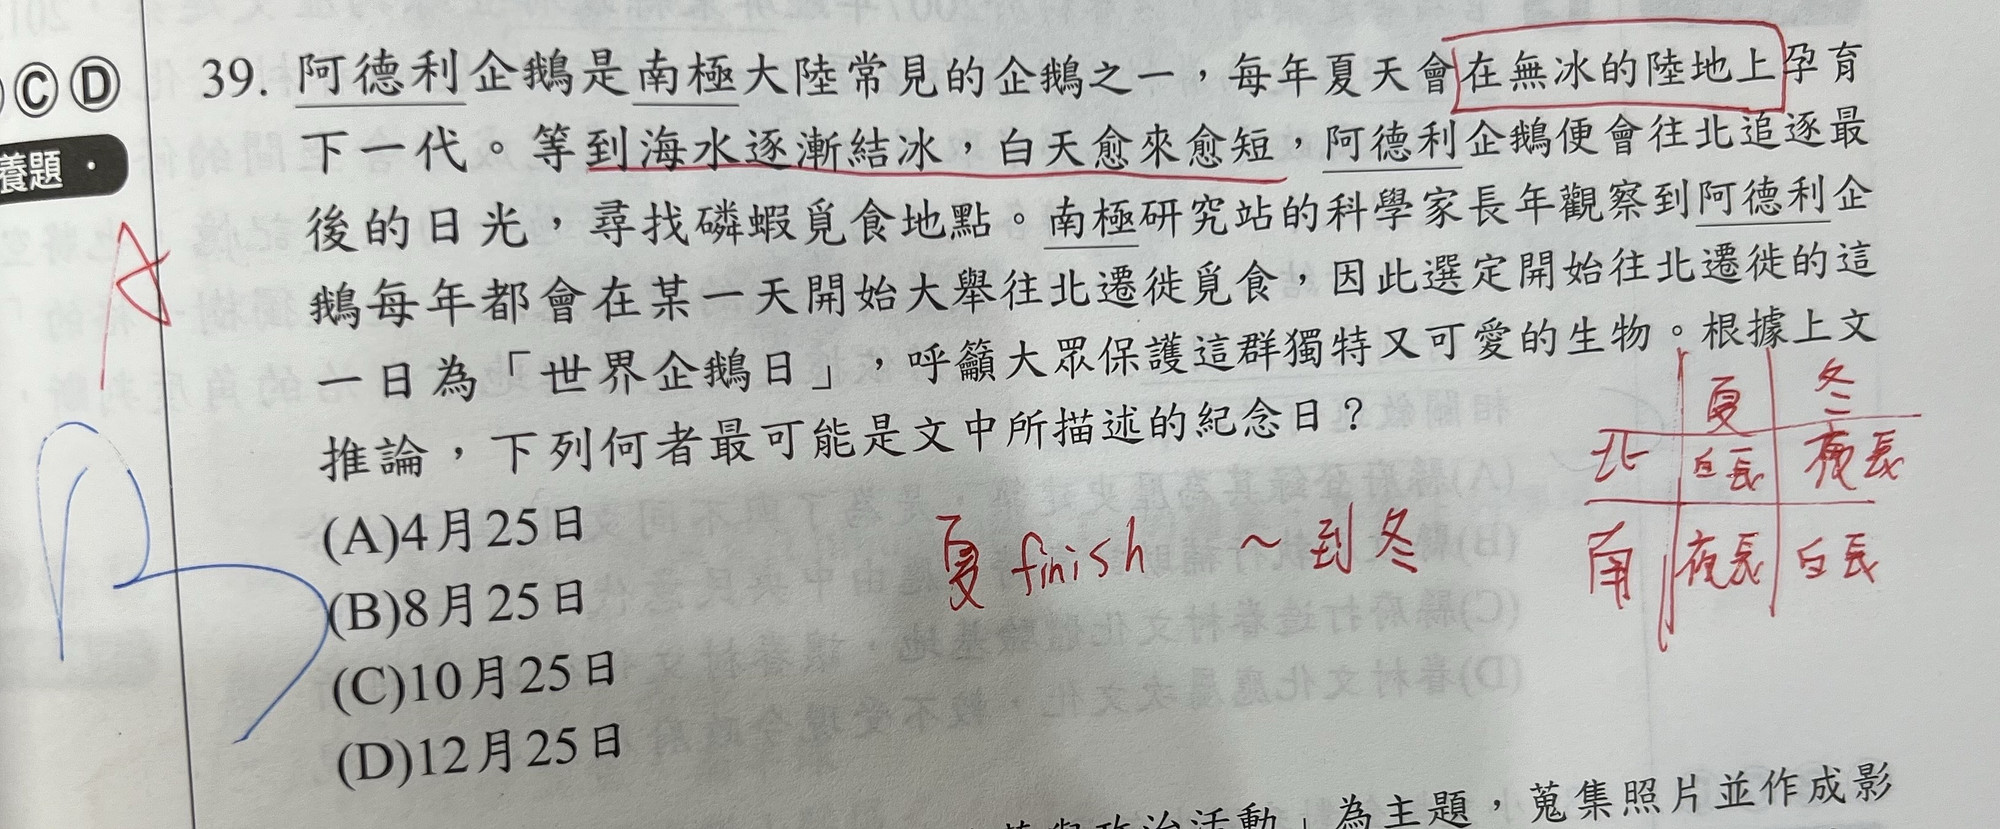 ⒸⒹ
養題．
A
39. 阿德利企鵝是南極大陸常見的企鵝之一，每年夏天會在無冰的陸地上孕育
下一代。等到海水逐漸結冰，白天愈來愈短，阿德利企鵝便會往北追逐最
後的日光，尋找磷蝦覓食地點。南極研究站的科學家長年觀察到阿德利企
鵝每年都會在某一天開始大舉往北遷徙覓食，因此選定開始往北遷徙的這
一日為「世界企鵝日」，呼籲大眾保護這群獨特又可愛的生物。根據上文
推論，下列何者最可能是文中所描述的紀念日？
(A)4月25日
(B)8月25日
(C)10月25日
(D)12月25日
夏 finish ～到冬
夏 冬
北 白長 夜長
南 夜長 白長
」為主題，蒐集照片並作成影